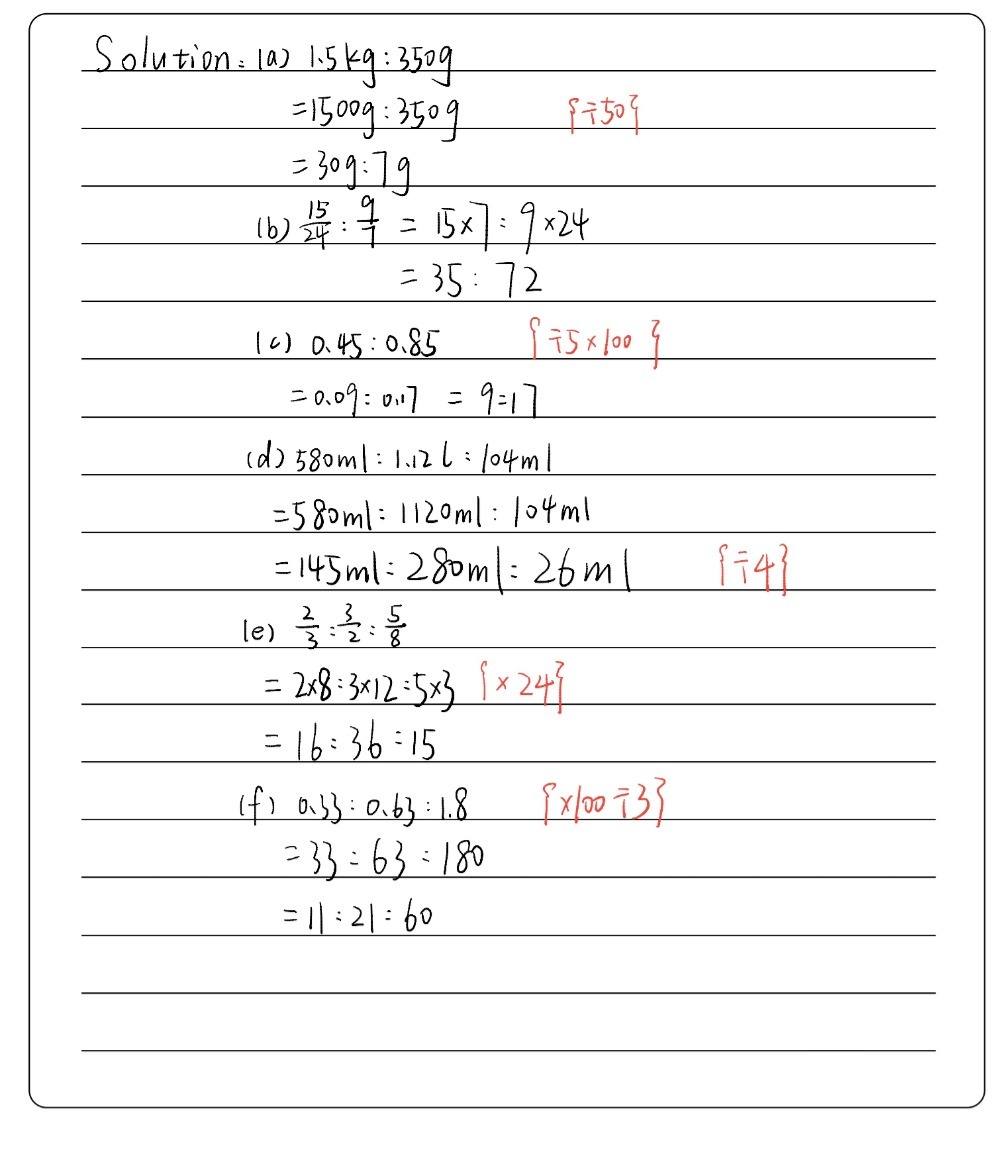 Solution: (a) 1.5kg : 350g
=1500g : 350g {÷50}
= 30g : 7g
(b) 15/24 : 9/7 = 15×7 : 9×24
= 35 : 72
(c) 0.45 : 0.85 {÷5×100}
= 0.09 : 0.17 = 9:17
(d) 580ml : 1.12l : 104ml
=580ml : 1120ml : 104ml
=145ml : 280ml : 26ml {÷4}
(e) 2/3 : 3/2 : 5/8
= 2×8 : 3×12 : 5×3 {×24}
= 16 : 36 : 15
(f) 0.33 : 0.63 : 1.8 {×100÷3}
= 33 : 63 : 180
= 11 : 21 : 60